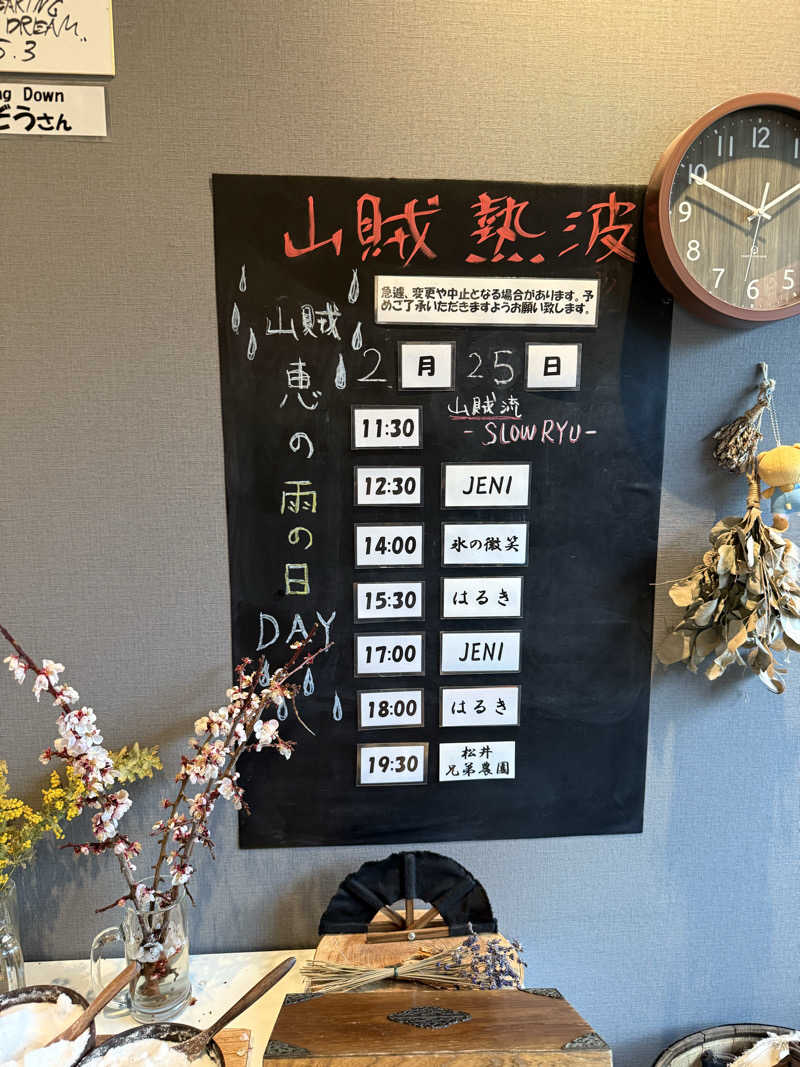 EAKING
DREAM"
5.3
ng Down
ぞうさん
山賊熱波
急遽、変更や中止となる場合があります。予
めご了承いただきますようお願い致します。
山賊
恵の雨の日
DAY
2月25日
11:30 山賊流
-SLOW RYU-
12:30 JENI
14:00 氷の微笑
15:30 はるき
17:00 JENI
18:00 はるき
19:30 松井
兄弟農園
11 12
10
9
8
7 6 5